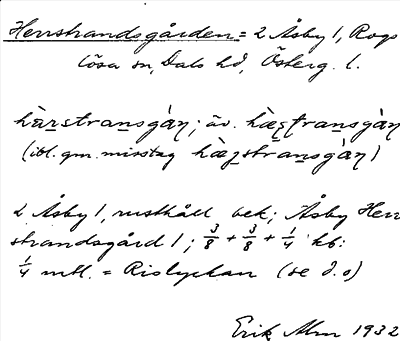 Herrstrandsgården = 2 Åsby 1, Rogs
lösa sn, Dals hd, Österg. l.
hàrstransgàṇ; äv. hæṣtransgàṇ
(ibl. gm. misstag hàṛstransgàṇ)
2 Åsby 1, rusthåll bek; Åsby Herr
strandsgård 1; 3/8 + 3/8 + 1/4 hb:
1/4 mtl. = Rislyckan (se d. o)
Erik Alm 1932